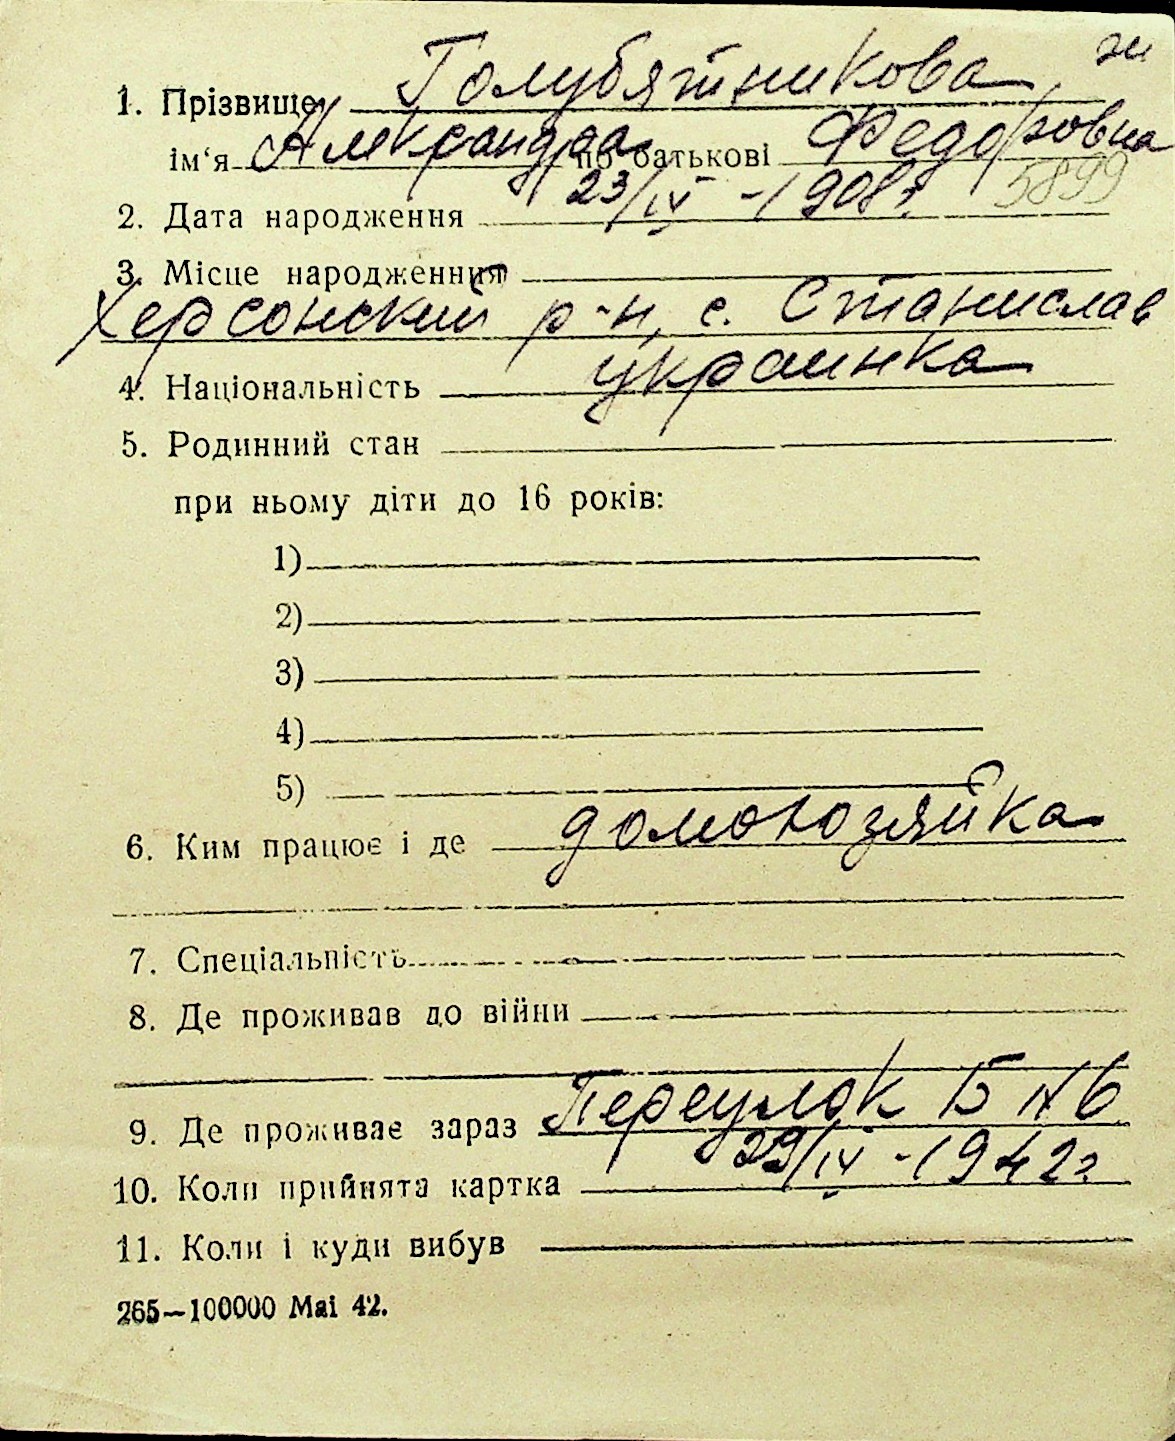 ж
1. Прізвище Голубятникова
ім'я Александра по батькові Федоровна
5899
2. Дата народження 23/IV - 1908 г.
3. Місце народженння
Херсонский р-н, с. Станислав
4. Національність украинка
5. Родинний стан
при ньому діти до 16 років:
1)
2)
3)
4)
5)
6. Ким працює і де домохозяйка
7. Спеціальність
8. Де проживав до війни
9. Де проживає зараз Переулок Б N 6
10. Коли прийнята картка 29/IV - 1942 г
11. Коли і куди вибув
265—100000 Mai 42.